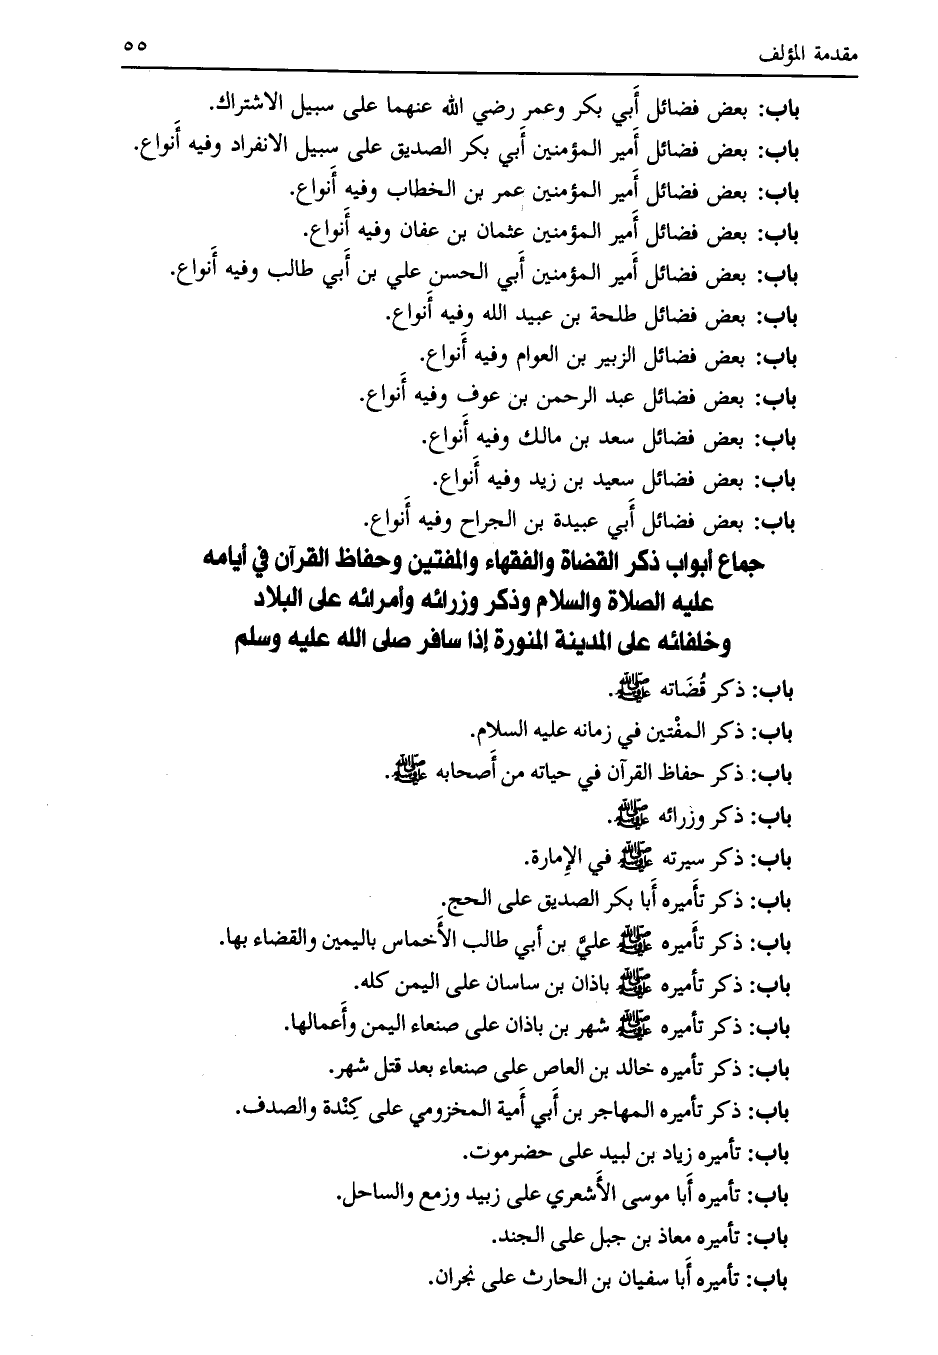 مقدمة المؤلف ٥٥
باب: بعض فضائل أَبي بكر وعمر رضي الله عنهما على سبيل الاشتراك.
باب: بعض فضائل أَمير المؤمنين أَبي بكر الصديق على سبيل الانفراد وفيه أَنواع.
باب: بعض فضائل أَمير المؤمنين عمر بن الخطاب وفيه أَنواع.
باب: بعض فضائل أَمير المؤمنين عثمان بن عفان وفيه أَنواع.
باب: بعض فضائل أَمير المؤمنين أَبي الحسن علي بن أَبي طالب وفيه أَنواع.
باب: بعض فضائل طلحة بن عبيد الله وفيه أَنواع.
باب: بعض فضائل الزبير بن العوام وفيه أَنواع.
باب: بعض فضائل عبد الرحمن بن عوف وفيه أَنواع.
باب: بعض فضائل سعد بن مالك وفيه أَنواع.
باب: بعض فضائل سعيد بن زيد وفيه أَنواع.
باب: بعض فضائل أَبي عبيدة بن الجراح وفيه أَنواع.
جماع أبواب ذكر القضاة والفقهاء والمفتين وحفاظ القرآن في أيامه
عليه الصلاة والسلام وذكر وزرائه وأمرائه على البلاد
وخلفائه على المدينة المنورة إذا سافر صلى الله عليه وسلم
باب: ذكر قُضَاته ﷺ.
باب: ذكر المفْتين في زمانه عليه السلام.
باب: ذكر حفاظ القرآن في حياته من أَصحابه ﷺ.
باب: ذكر وزرائه ﷺ.
باب: ذكر سيرته ﷺ في الإِمارة.
باب: ذكر تأَميره أَبا بكر الصديق على الحج.
باب: ذكر تأَميره ﷺ عليَّ بن أَبي طالب الأَخماس باليمين والقضاء بها.
باب: ذكر تأميره ﷺ باذان بن ساسان على اليمن كله.
باب: ذكر تأميره ﷺ شهر بن باذان على صنعاء اليمن وأَعمالها.
باب: ذكر تأميره خالد بن العاص على صنعاء بعد قتل شهر.
باب: ذكر تأميره المهاجر بن أَبي أمية المخزومي على كِنْدة والصدف.
باب: تأميره زياد بن لبيد على حضرموت.
باب: تأميره أَبا موسى الأَشعري على زبيد وزمع والساحل.
باب: تأميره معاذ بن جبل على الجند.
باب: تأميره أَبا سفيان بن الحارث على نجران.